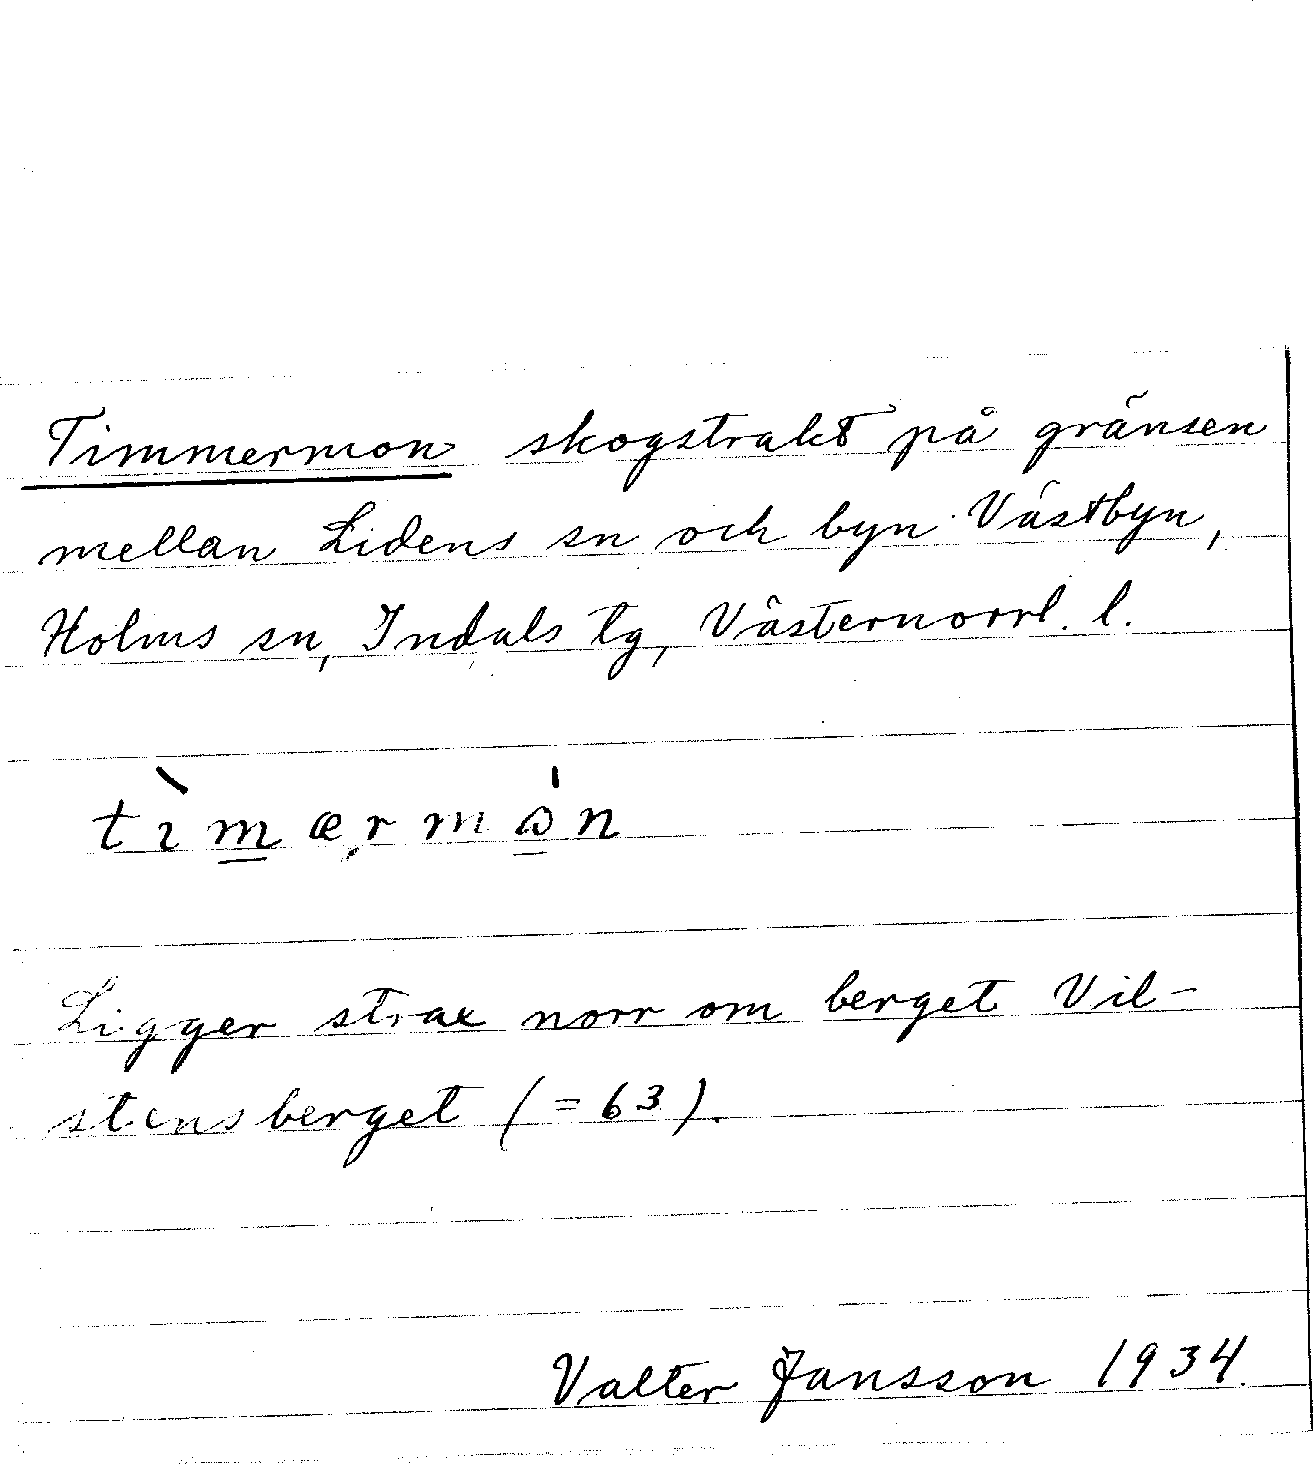 Timmermon skogstrakt på gränsen
mellan Lidens sn och byn Västbyn,
Holms sn, Indals tg, Västernorrl. l.
tìmærmón
Ligger strax norr om berget Vil-
stensberget (= 63).
Valter Jansson 1934.